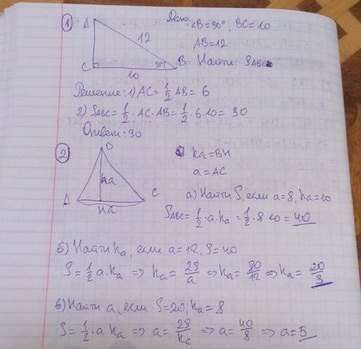 ① A Дано:
∠B=30°, BC=10
12 AB=12
C 30° B Найти: SABC
10
Решение: 1) AC=½AB=6
2) SABC=½·AC·AB=½·6·10=30
Ответ: 30
②
ha=BH
a=AC
ha
а) Найти S, если a=8, ha=10
A C
Ha
SABC=½·a·ha=½·8·10=40
б) Найти ha, если a=12, S=40
S=½a·ha ⇒ ha=2S/a ⇒ ha=80/12 ⇒ ha=20/3
в) Найти a, если S=20, ha=8
S=½·a·ha ⇒ a=2S/ha ⇒ a=40/8 ⇒ a=5